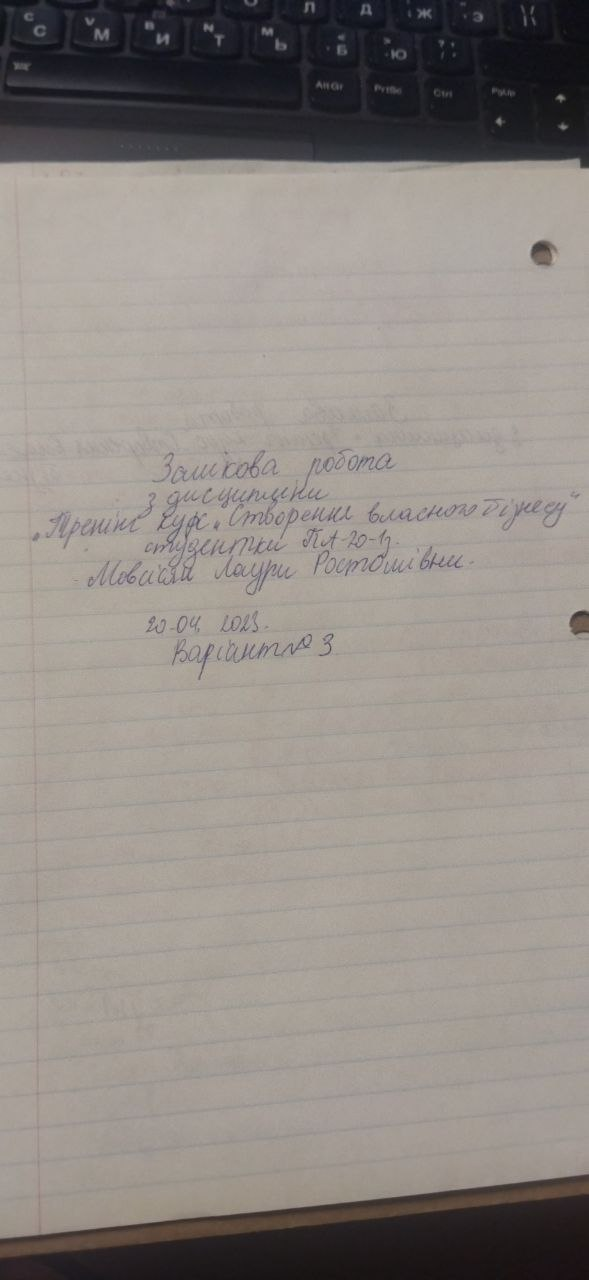 C С
V М
B И
N Т
M Ь
< Б
> Ю
Л
Д
Ж
Э
AltGr
PrtSc
Ctrl
PgUp
Залікова робота
з дисципліни
„Тренінг курс „Створення власного бізнесу"
студентки ПА-20-1з.
Мовсісян Лаури Ростомівни.
20.04. 2023.
Варіант № 3